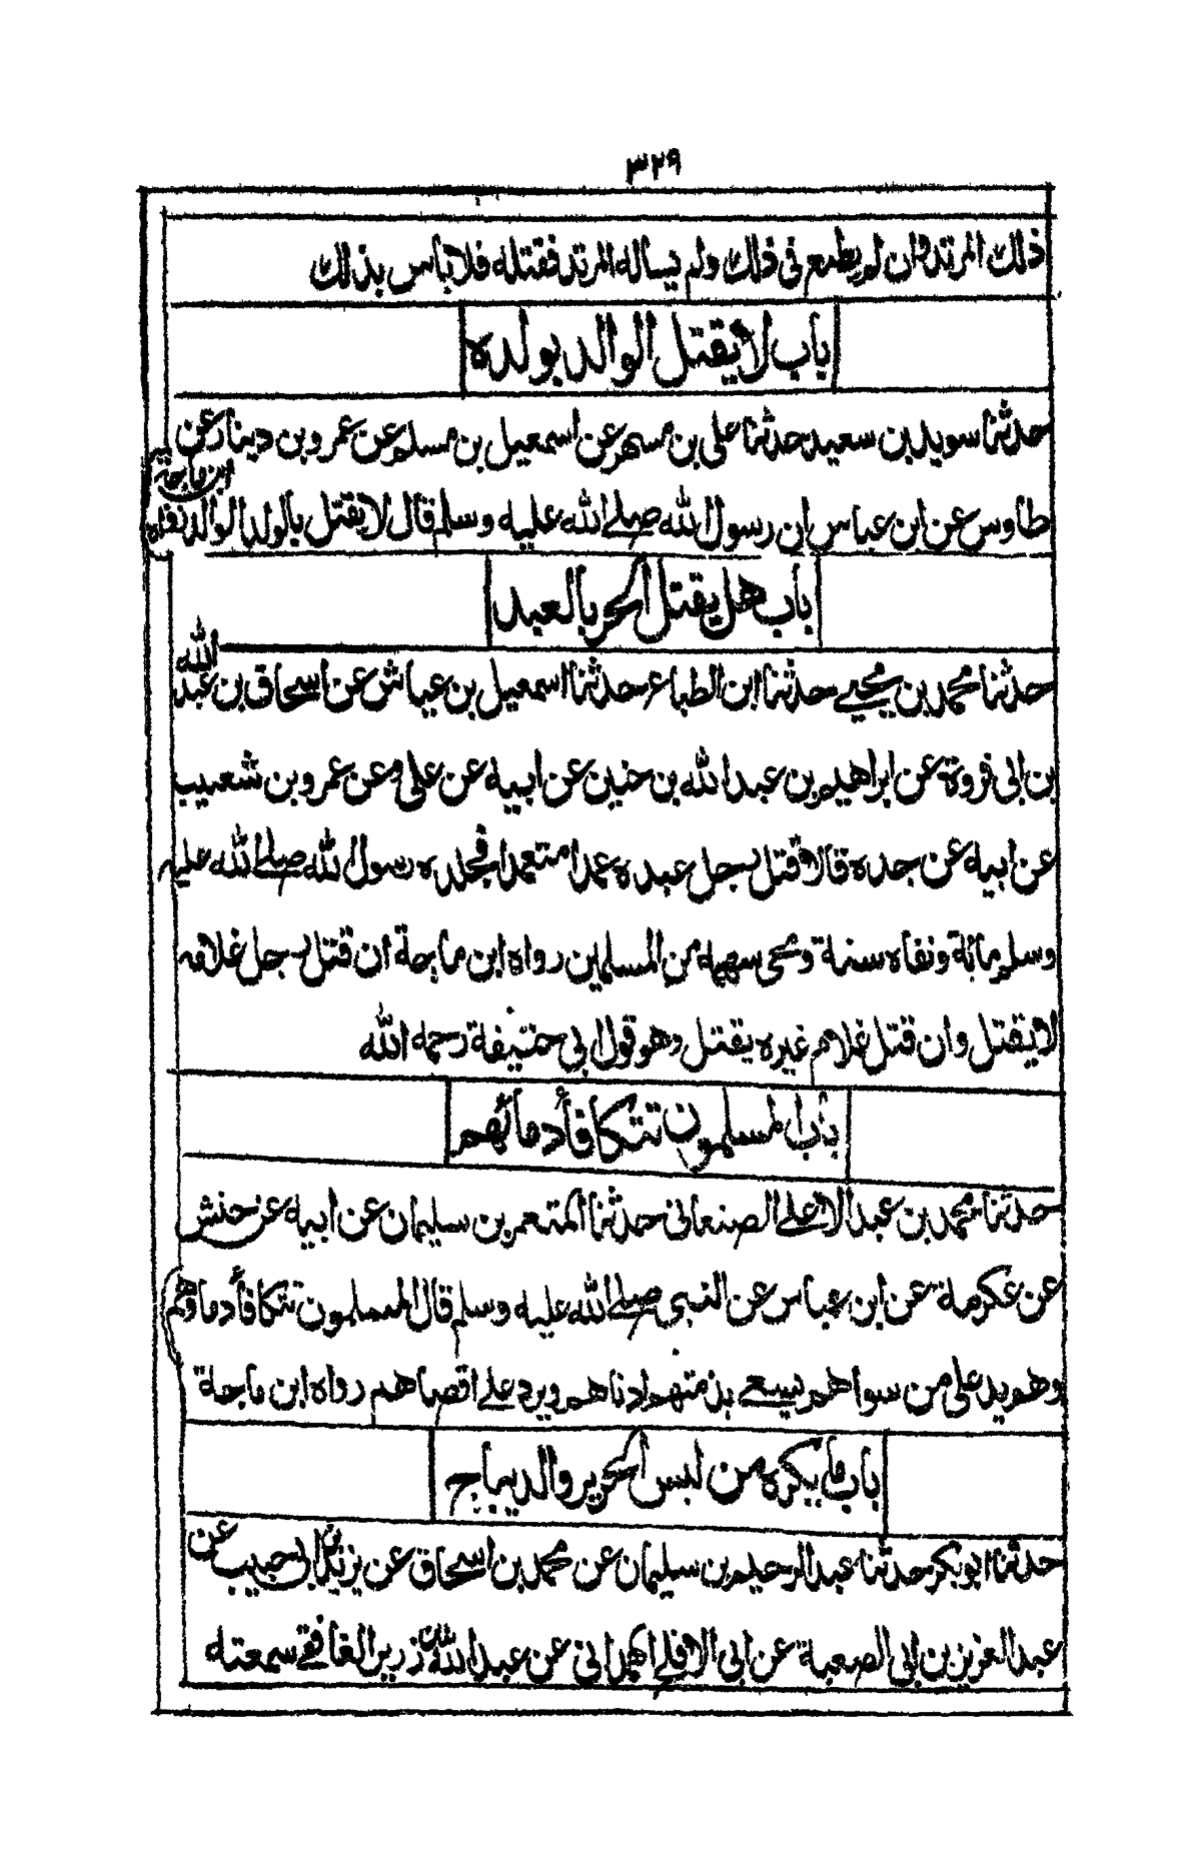 ٣٢٩
ذلك المرتد وان لم يطمع فى ذلك ولم يساله المرتد فقتله فلا باس بذلك
باب لا يقتل الوالد بولده
حدثنا سويد بن سعيد حدثنا على بن مسهر عن اسمعيل بن مسلم عن عمرو بن دينار عن
طاوس عن ابن عباس ان رسول الله صلے الله عليه وسلم قال لا يقتل بالولد الوالد رواه ابن ماجة
باب هل يقتل الحر بالعبد
حدثنا محمد بن يحيے حدثنا ابن الطباع حدثنا اسمعيل بن عياش عن اسحاق بن عبد الله
بن ابى فروة عن ابراهيم بن عبد الله بن حنين عن ابيه عن على وعن عمرو بن شعيب
عن ابيه عن جده قالا قتل رجل عبده عمدا متعمدا فجلده رسول الله صلے الله عليه
وسلم مائة ونفاه سنة ومحى سهمه من المسلمين رواه ابن ماجة ان قتل رجل غلامه
لا يقتل وان قتل غلام غيره يقتل وهو قول ابى حنيفة رحمه الله
باب المسلمون تتكافأ دمائهم
حدثنا محمد بن عبد الاعلے الصنعانى حدثنا المتعمر بن سليمان عن ابيه عن حنش
عن عكرمة عن ابن عباس عن النبى صلے الله عليه وسلم قال المسلمون تتكافأ دماؤهم
وهم يد على من سواهم يسعے بذمتهم ادناهم ويرد علے اقصاهم رواه ابن ماجة
باب ما يكره من لبس الحرير والديباج
حدثنا ابو بكر حدثنا عبد الرحيم بن سليمان عن محمد بن اسحاق عن يزيد بن ابى حبيب عن
عبد العزيز بن ابى الصعبة عن ابى الافلح الهمدانى عن عبد الله بن زرير الغافقے سمعته